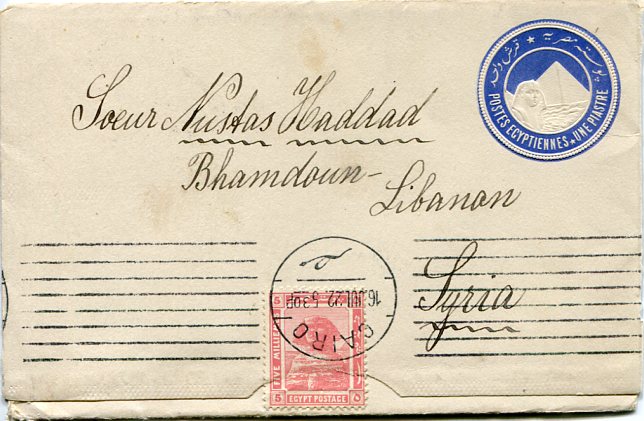 بوسته مصريه ★ قرش واحد
POSTES EGYPTIENNES ★ UNE PIASTRE
Soeur Nustas Haddad
Bhamdoun-
Libanon
Syria
CAIRO
16.JUL.22. 5.30P
5
5
FIVE MILL
EGYPT POSTAGE
5
٥